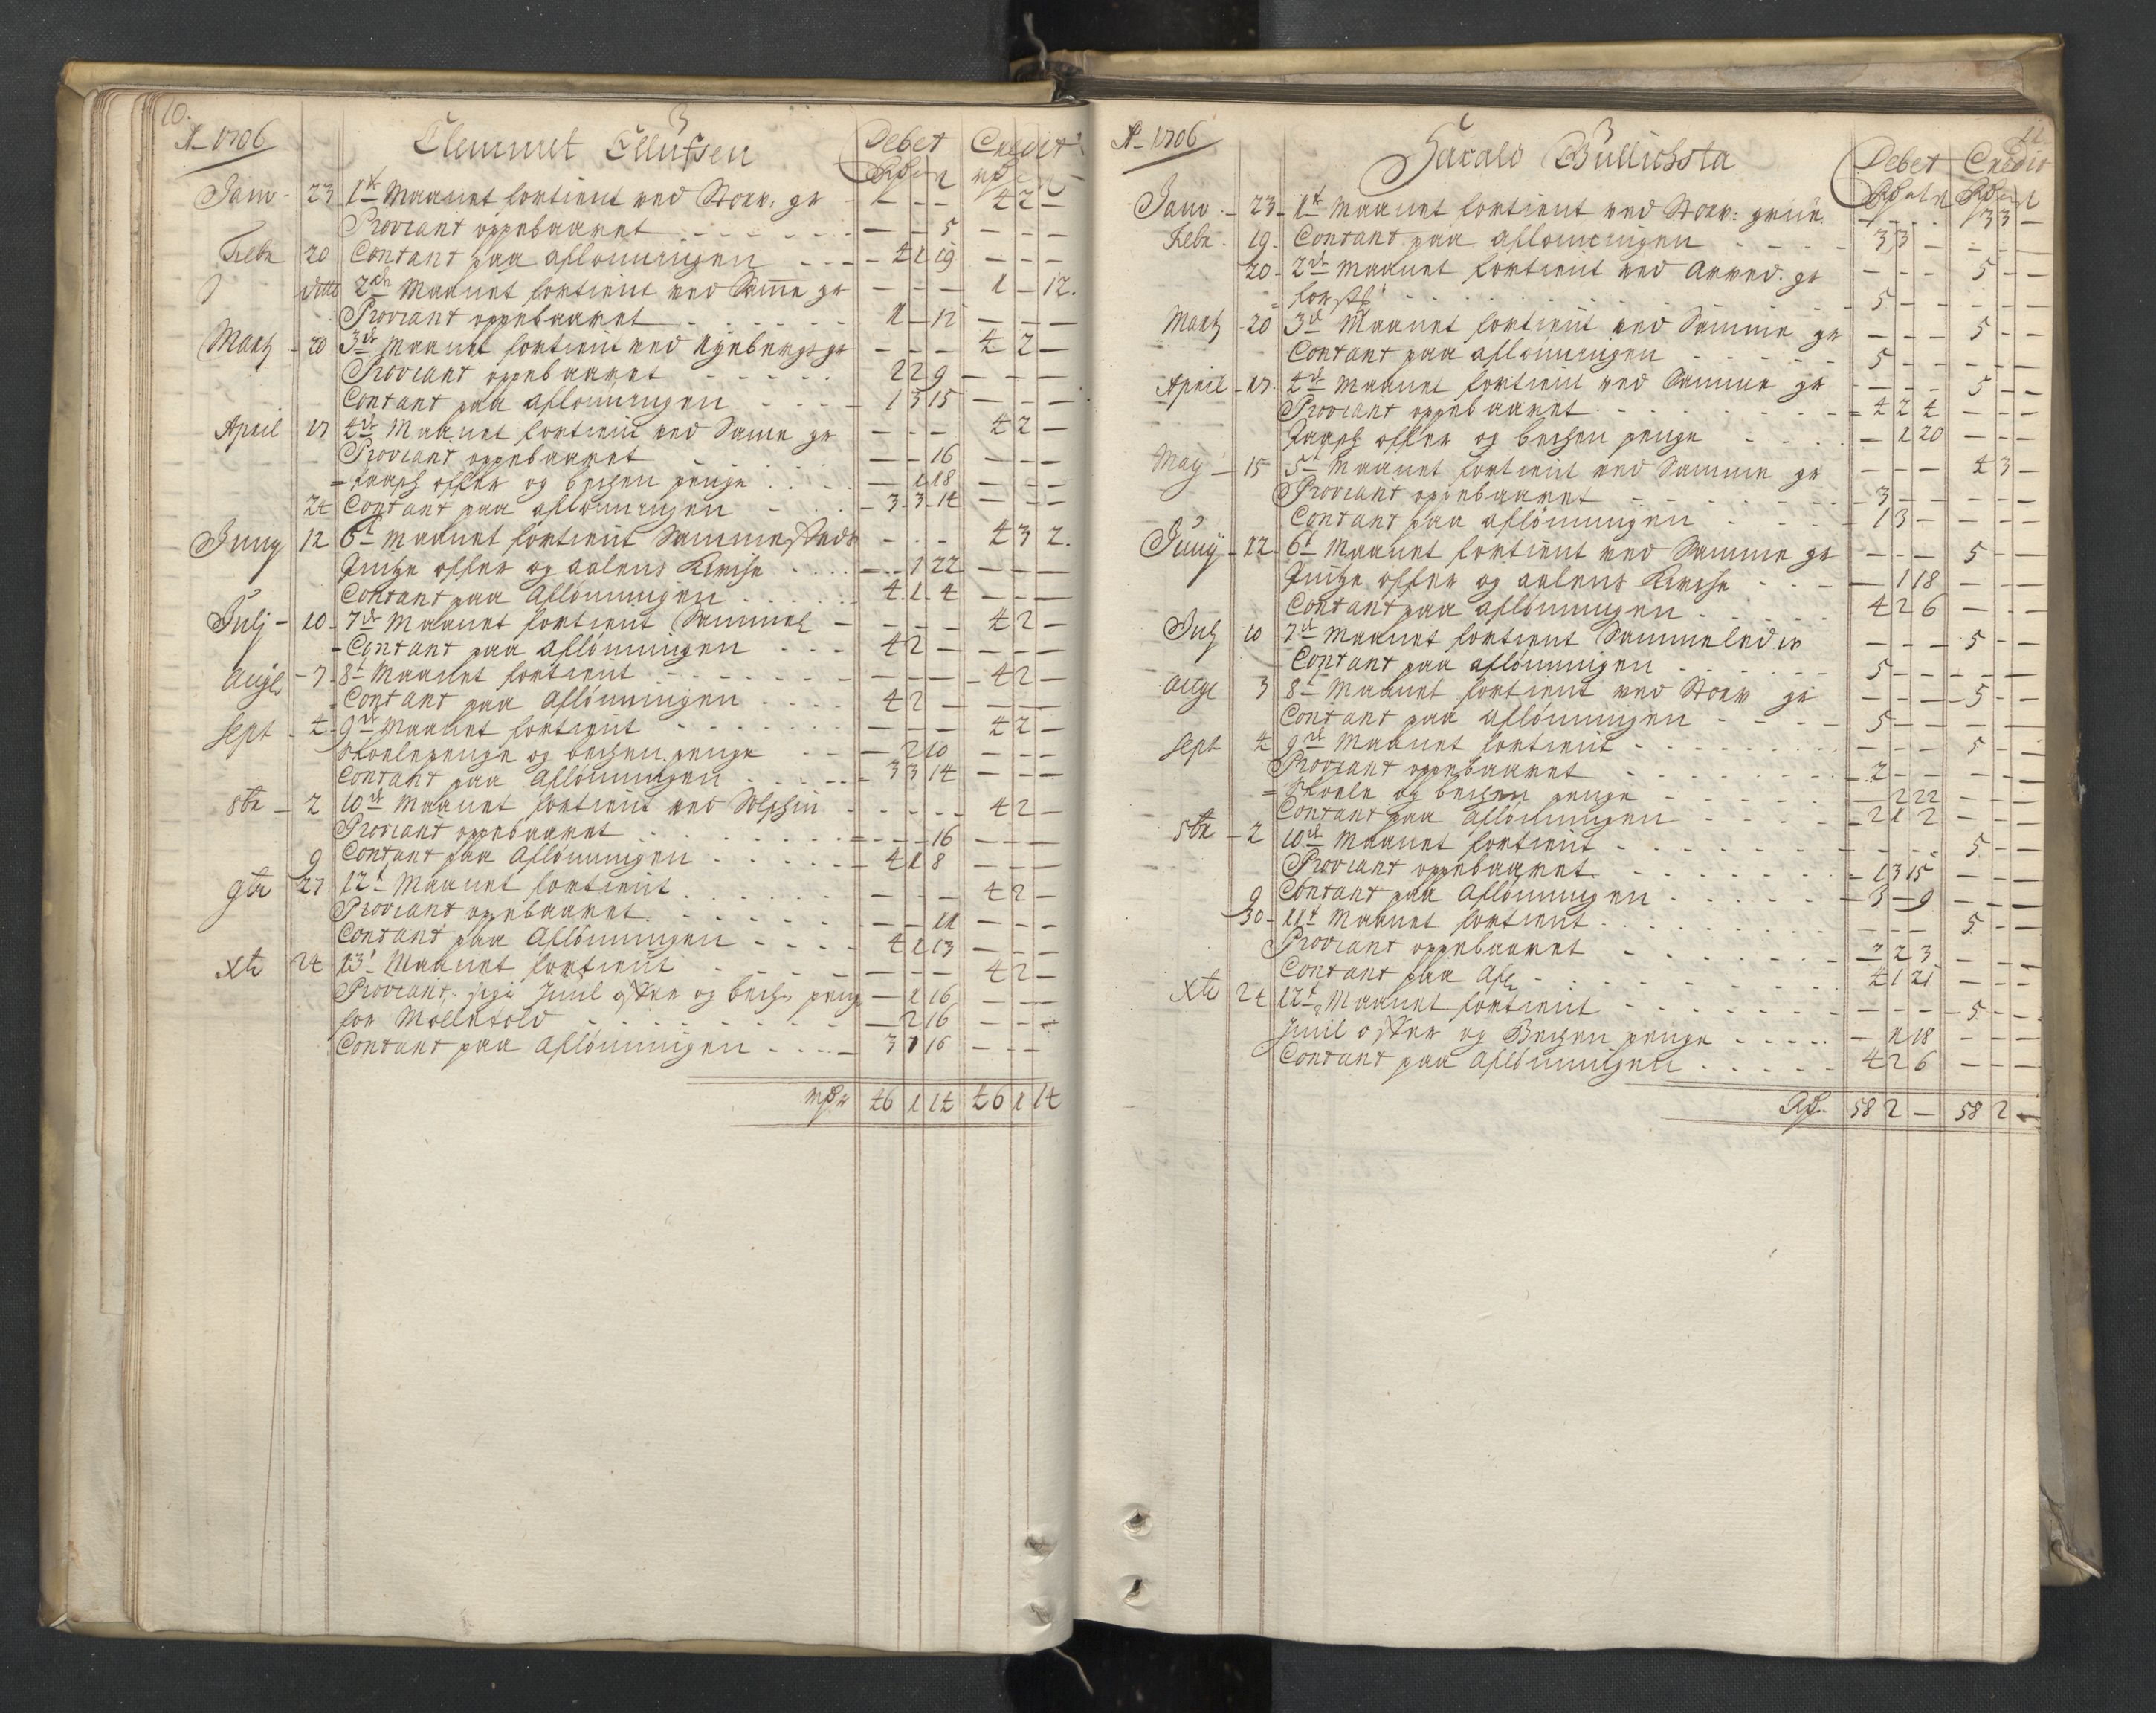 10.
A 1706
Clemmet Ellufsen
Debet Credit
Janv - 23 1t Maanet fortient ved Storv: gr - - - 4 2 -
Proviant oppebaaret - - 5 - - -
Febr 20 Contant paa aflonningen 4 1 19 - - -
ditto 2den Maanet fortient ved Samme gr - - - 1 - 12.
Proviant oppebaaret 1 - 12 - - -
Martz - 20 3de Maanet fortient ved Nyebergs gr - - - 4 2 -
Proviant oppebaaret 2 2 9 - - -
Contant paa aflonningen 1 3 15 - - -
April 17 4de Maanet fortient ved Samme gr - - - 4 2 -
Proviant oppebaaret - - 16 - - -
offer og bechen penge - 1 18 - - -
24 Contant paa aflønningen - 3 3 14 - - -
Juny 12 6t Maanet fortient Sammesteds - - - 4 3 2.
offer og Kirche - 1 22 - - -
Contant paa Aflønningen 4 1 4 - - -
Julj - 10 - 7de Maanet fortient - - - 4 2 -
- Contant paa Aflønningen 4 2 - - - -
Augt - 7 - 8t Maanet fortient - - - 4 2 -
Contant paa Aflønningen 4 2 - - - -
Sept - 4 - 9de Maanet fortient - - - 4 2 -
Skolepenge og bechen penge - 2 10 - - -
Contant paa Aflønningen 3 3 14 - - -
8br - 2 10de Maanet fortient ved - - - 4 2 -
Proviant oppebaaret - - 16 - - -
9 Contant paa Aflønningen 4 1 8 - - -
9br 27 12t Maanet fortient - - - 4 2 -
Proviant oppebaaret - - 11 - - -
Contant paa Aflønningen 4 1 13 - - -
Xbr 24 13t Maanet fortient - - - 4 2 -
Proviant Juul offer og penge - 1 16 - - -
for - 2 16 - - -
Contant paa Aflønningen 3 1 16 - - -
46 1 14 46 1 14
11.
A 1706
Harald
Debet Credit
Janv - 23 - 1t Maanet fortient ved Storv: - - - 3 3 -
Febr. 19 - Contant paa aflonningen 3 3 - - - -
20 - 2de Maanet fortient ved gr - - - 5 - -
5 - - - - -
Martz - 20 3de Maanet fortient ved Samme gr - - - 5 - -
Contant paa aflonningen 5 - - - - -
April - 17. 4de Maanet fortient ved Samme gr - - - 5 - -
Proviant oppebaaret 4 2 4 - - -
offer og bechen penge - 1 20 - - -
May - 15 5t Maanet fortient ved Samme gr - - - 4 3 -
Proviant oppebaaret 3 - - - - -
Contant paa aflønningen 1 3 - - - -
Junij - 12 - 6t Maanet fortient ved Samme gr - - - 5 - -
offer og Kirche - 1 18 - - -
Contant paa aflønningen 4 2 6 - - -
Julj 10 7de Maanet fortient Sammeledes - - - 5 - -
Contant paa aflønningen 5 - - - - -
Augt 3 8t Maanet fortient ved Storv gr - - - 5 - -
Contant paa aflønningen 5 - - - - -
Sept 4 9de Maanet fortient - - - 5 - -
Proviant oppebaaret 2 - - - - -
Skole og bechen penge - 2 22 - - -
Contant paa aflønningen 2 1 2 - - -
8br - 2 10de Maanet fortient - - - 5 - -
Proviant oppebaaret 1 3 15 - - -
9 Contant paa Aflønningen 3 - 9 - - -
30 - 11t Maanet fortient - - - 5 - -
Proviant oppebaaret - 2 2 3 - - -
Contant paa Afl 4 1 21 - - -
Xbr 24 12t Maanet fortient - - - 5 - -
Juul offer og Bechen penge - 1 18 - - -
Contant paa Aflønningen 4 2 6 - - -
58 2 - 58 2 -